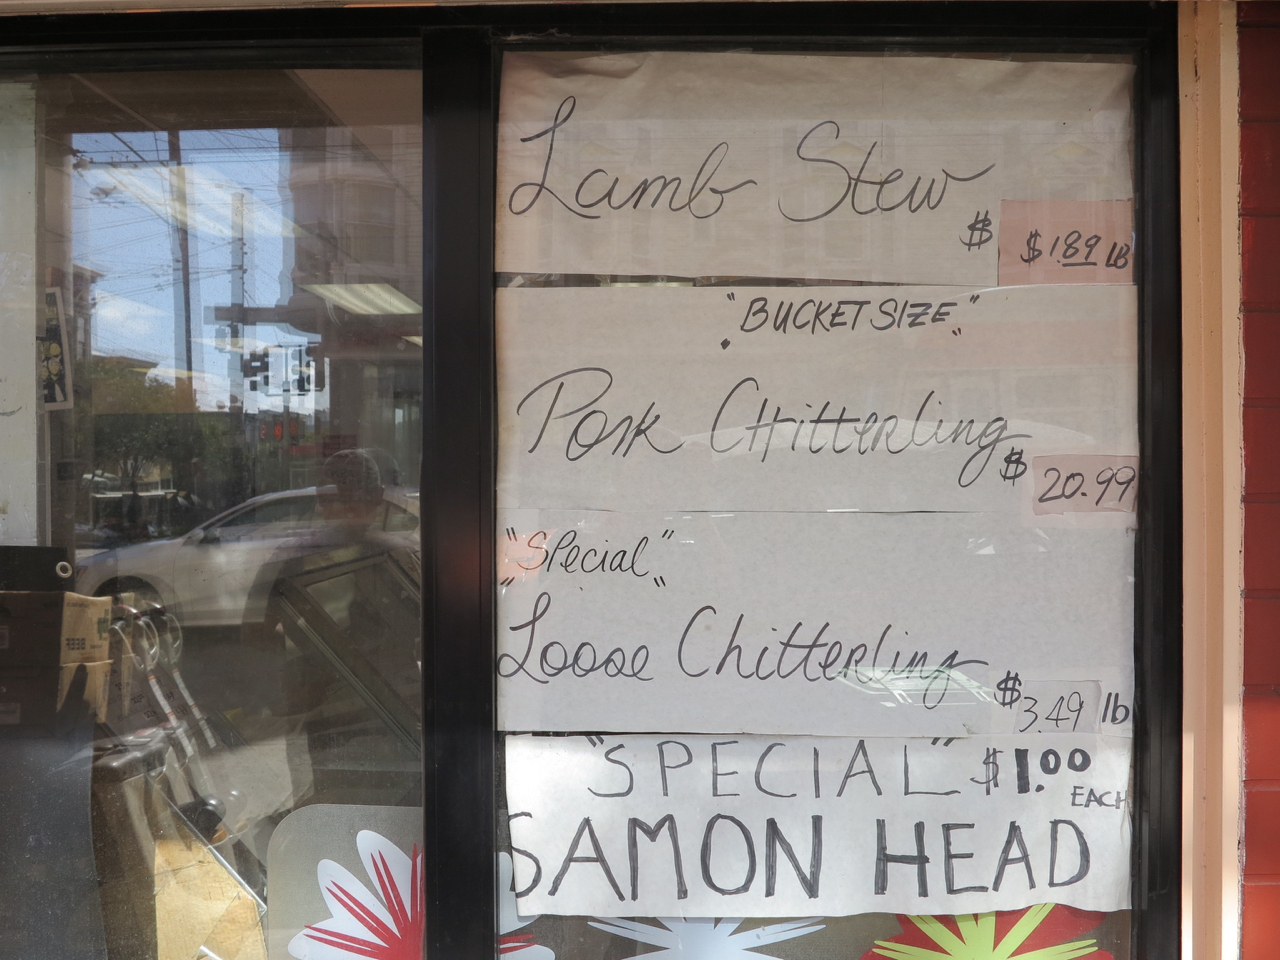 Lamb Stew
$ $1.89 LB
"BUCKET SIZE"
Pork CHitterling
$ 20.99
"SPecial"
Loose Chitterling
$ 3.49 lb
"SPECIAL" $1.00
EACH
SAMON HEAD
BEEF